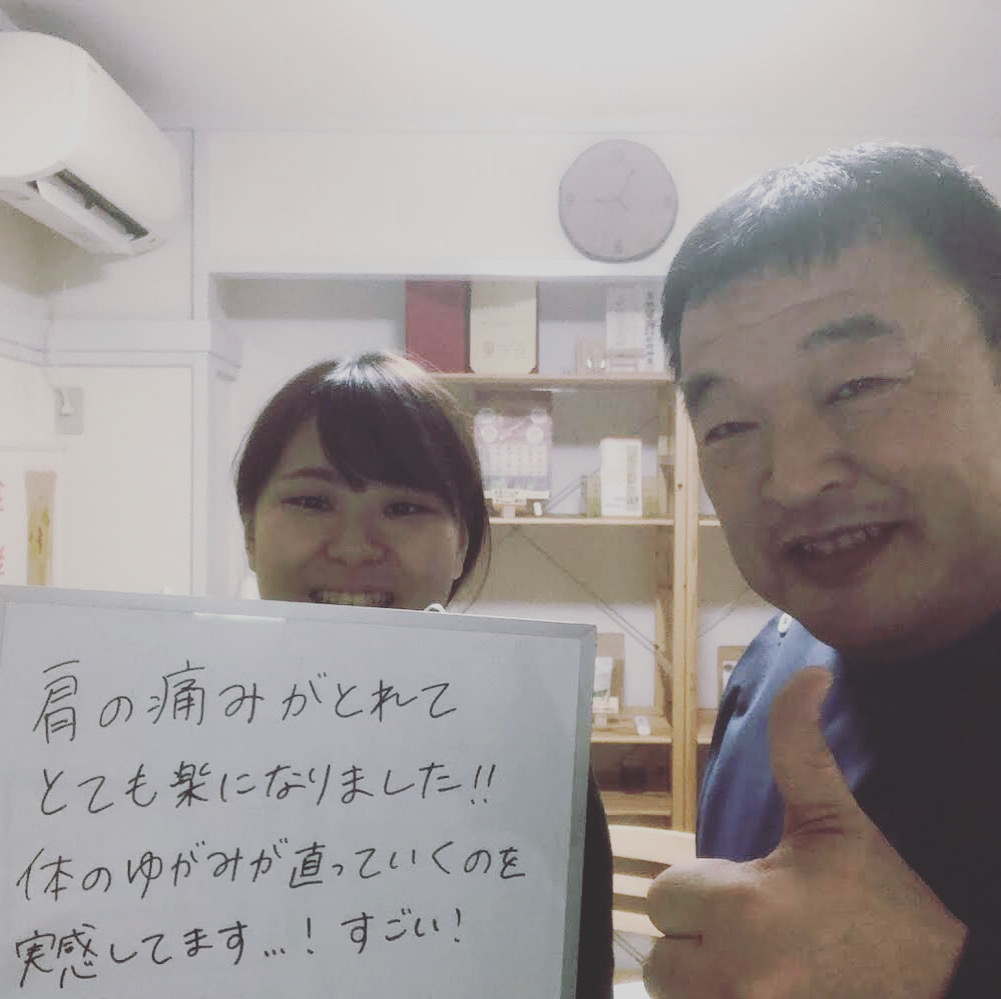 肩の痛みがとれて
とても楽になりました!!
体のゆがみが直っていくのを
実感してます…! すごい!